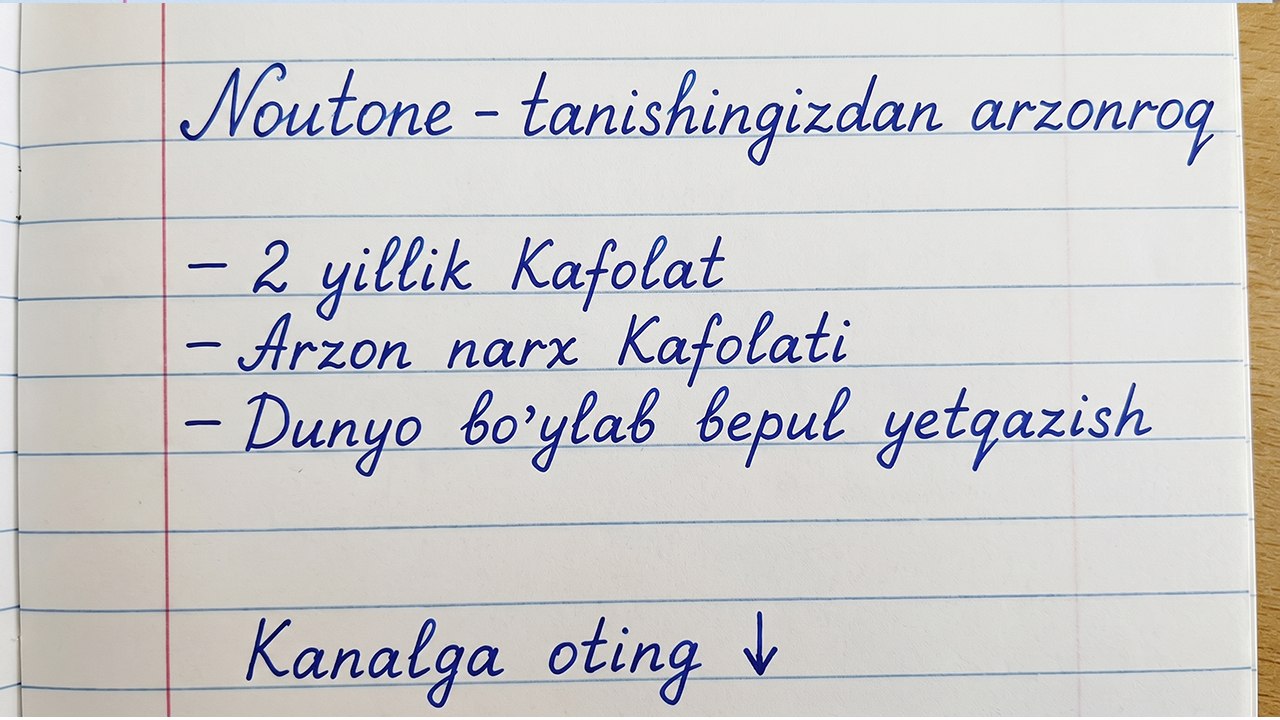 Noutone - tanishingizdan arzonroq
- 2 yillik Kafolat
- Arzon narx Kafolati
- Dunyo bo'ylab bepul yetqazish
Kanalga oting ↓